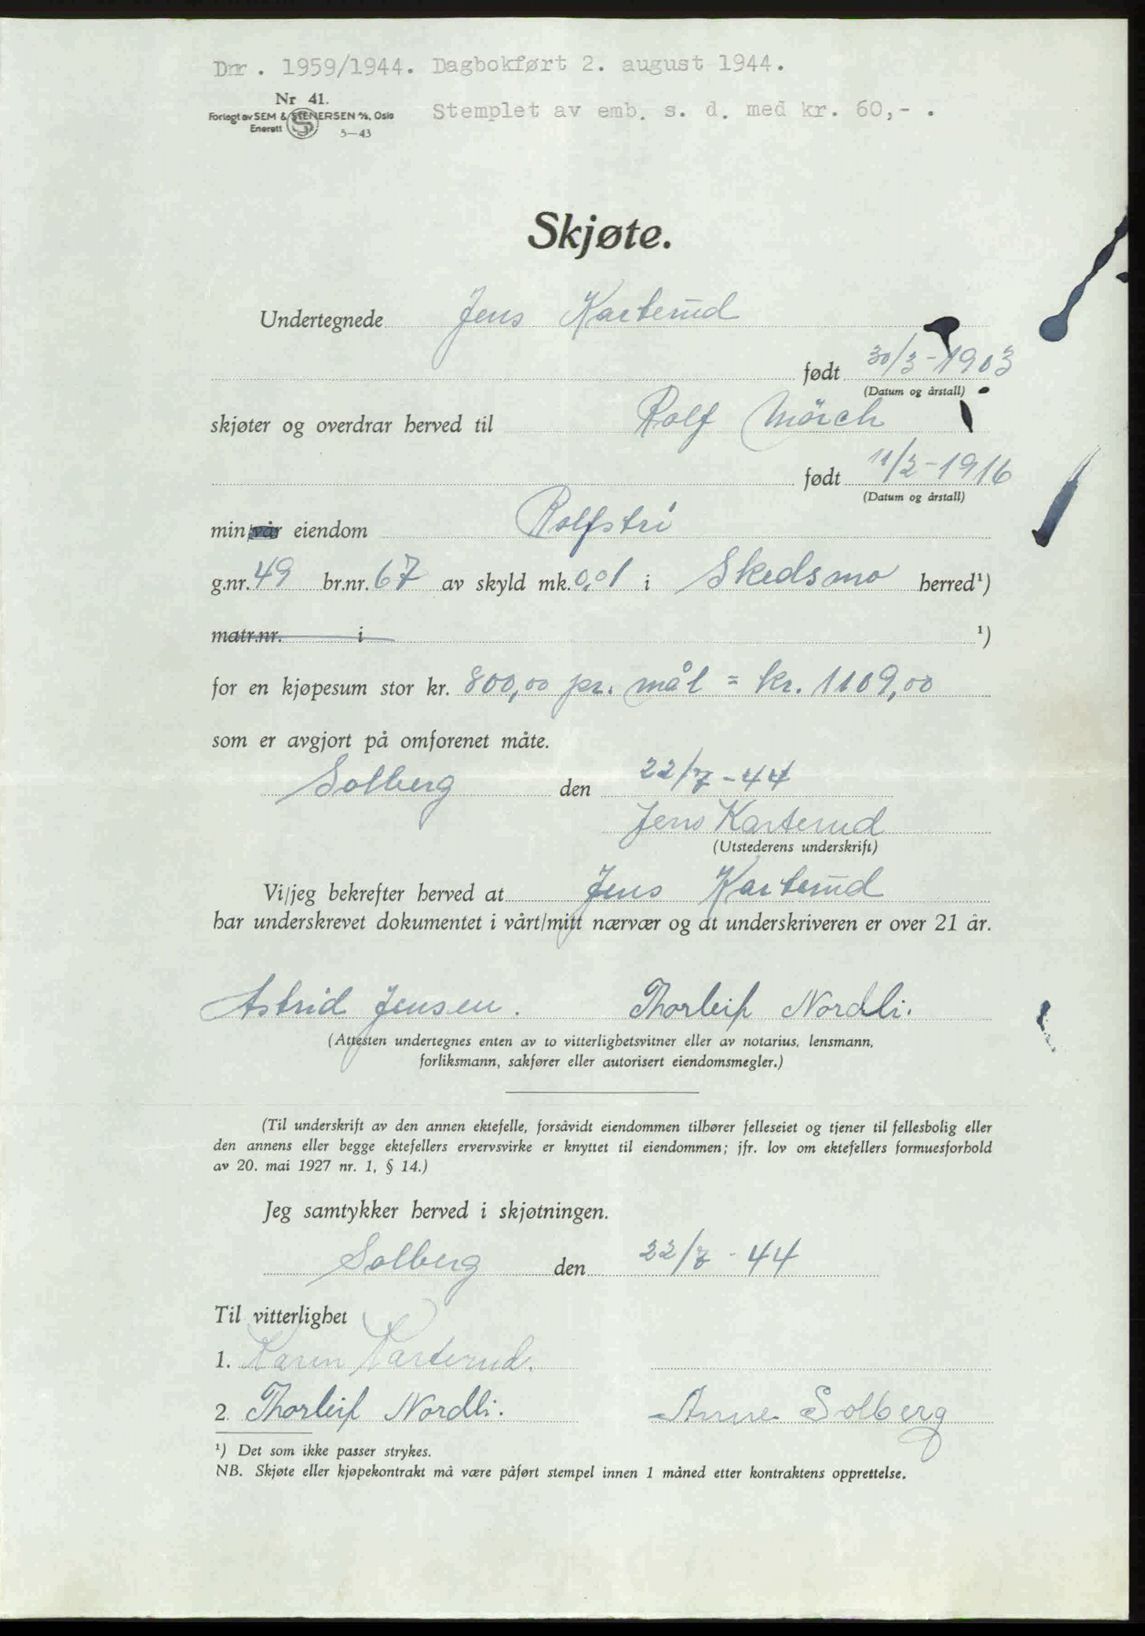 Dnr. 1959/1944. Dagbokført 2. august 1944.
Nr 41.
Forlagt av SEM & STENERSEN A/S, Oslo
Enerett
5—43
Stemplet av emb. s. d. med kr. 60,- .
Skjøte.
Undertegnede Jens Karterud
født 30/3-1903
(Datum og årstall)
skjøter og overdrar herved til Rolf Mörch
født 11/2-1916
(Datum og årstall)
min/vår eiendom Rolfstri
g.nr. 49 br.nr. 67 av skyld mk. 0,01 i Skedsmo herred¹)
matr.nr. i ¹)
for en kjøpesum stor kr. 800,00 pr. mål = kr. 1109,00
som er avgjort på omforenet måte.
Solberg den 22/7-44
Jens Karterud
(Utstederens underskrift)
Vi/jeg bekrefter herved at Jens Karterud
har underskrevet dokumentet i vårt/mitt nærvær og at underskriveren er over 21 år.
Astrid Jensen. Thorleif Nordli.
(Attesten undertegnes enten av to vitterlighetsvitner eller av notarius, lensmann,
forliksmann, sakfører eller autorisert eiendomsmegler.)
(Til underskrift av den annen ektefelle, forsåvidt eiendommen tilhører felleseiet og tjener til fellesbolig eller
den annens eller begge ektefellers ervervsvirke er knyttet til eiendommen; jfr. lov om ektefellers formuesforhold
av 20. mai 1927 nr. 1, § 14.)
Jeg samtykker herved i skjøtningen.
Solberg den 22/7-44
Til vitterlighet
1. Karen Karterud.
2. Thorleif Nordli. Anne Solberg
¹) Det som ikke passer strykes.
NB. Skjøte eller kjøpekontrakt må være påført stempel innen 1 måned etter kontraktens opprettelse.